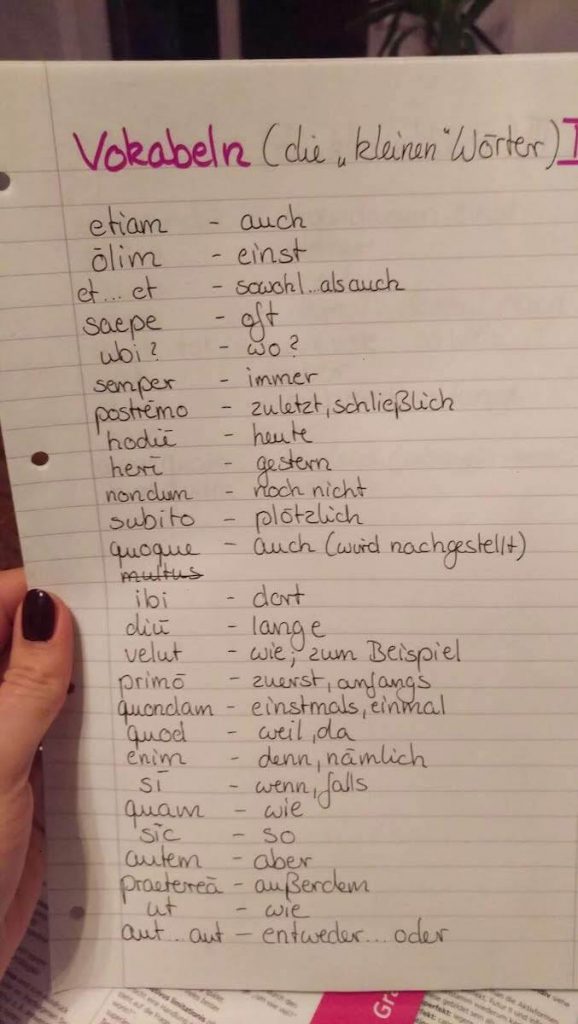 Vokabeln (die „kleinen" Wörter) I
etiam - auch
ōlim - einst
et...et - sowohl...als auch
saepe - oft
ubi? - wo?
semper - immer
postrēmo - zuletzt, schließlich
hodiē - heute
herī - gestern
nondum - noch nicht
subito - plötzlich
quoque - auch (wird nachgestellt)
multus
ibi - dort
diū - lange
velut - wie; zum Beispiel
primō - zuerst, anfangs
quondam - einstmals, einmal
quod - weil, da
enim - denn, nämlich
sī - wenn, falls
quam - wie
sīc - so
autem - aber
praetereā - außerdem
ut - wie
aut...aut - entweder...oder